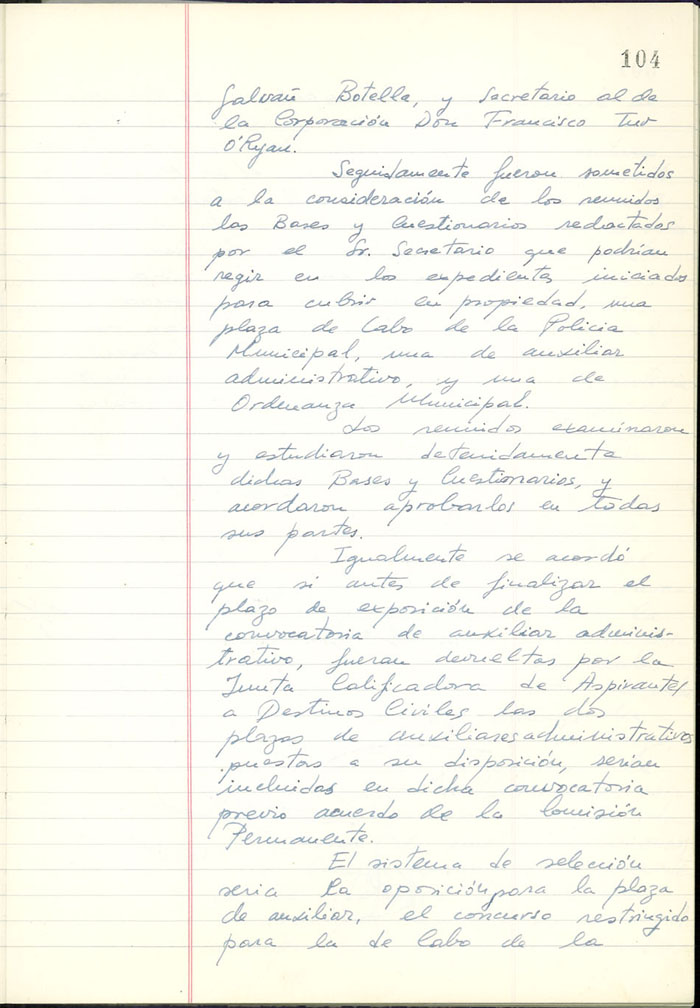 104
Galvañ Botella, y Secretario al de
la Corporación Don Francisco Tur
O'Ryan.
Seguidamente fueron sometidos
a la consideración de los reunidos
las Bases y Cuestionarios redactados
por el Sr. Secretario que podrían
regir en los expedientes iniciados
para cubrir en propiedad, una
plaza de Cabo de la Policia
Municipal, una de auxiliar
administrativo, y una de
Ordenanza Municipal.
Los reunidos examinaron
y estudiaron detenidamente
dichas Bases y Cuestionarios, y
acordaron aprobarlos en todas
sus partes.
Igualmente se acordó
que si antes de finalizar el
plazo de exposición de la
convocatoria de auxiliar adminis-
trativo, fueran devueltas por la
Junta Calificadora de Aspirantes
a Destinos Civiles las dos
plazas de auxiliares administrativos
puestas a su disposición, serian
incluidas en dicha convocatoria
previo acuerdo de la Comisión
Permanente.
El sistema de selección
seria la oposición para la plaza
de auxiliar, el concurso restringido
para la de Cabo de la